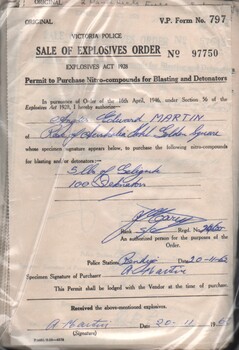 ORIGINAL V.P. Form No. 797
VICTORIA POLICE
SALE OF EXPLOSIVES ORDER No 97750
EXPLOSIVES ACT 1928
Permit to Purchase Nitro-compounds for Blasting and Detonators
In pursuance of Order of the 16th April, 1946, under Section 56 of the
Explosives Act 1928, I hereby authorize—
Edward MARTIN
of Golden Square
whose specimen signature appears below, to purchase the following nitro-compounds
for blasting and/or detonators:—
5 lbs of Gelignite
100 Detonators
Rank Regd. No.
An authorized person for the purposes of the
Order.
Police Station Bendigo Date 20-11-62
Specimen Signature of Purchaser A Martin
This Permit shall be lodged with the Vendor at the time of purchase.
Received the above-mentioned explosives.
A Martin Date 20-11-
(Signature)